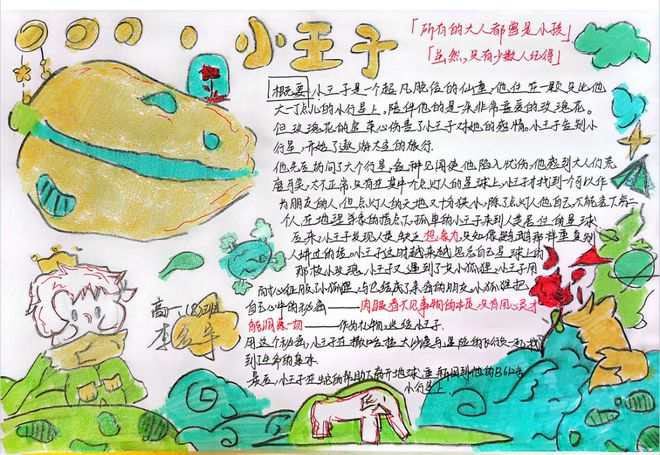 小王子
「所有的大人都曾是小孩」
「虽然,只有少数人记得」
概要:小王子是一个超凡脱俗的仙童,他住在一颗只比他
大一丁点儿的小行星上。陪伴他的是一朵非常喜爱的玫瑰花。
但玫瑰花的虚荣心伤害了小王子对她的感情。小王子告别小
行星,开始了遨游太空的旅行.
他先后访问了六个行星,各种见闻使他陷入忧伤,他感到大人们荒
唐可笑,太不正常,只有在其中一个点灯人的星球上,小王子才找到一个可以作
为朋友的人,但点灯人的天地又十分狭小,除了点灯人他自己,不能容下第二
个人,在地理学家的指点下,孤单的小王子来到人类居住的星球
后来,小王子发现人类缺乏想象力,只知像鹦鹉那样重复别
人讲过的话,小王子这时越来越思念自己星球上的
那枝小玫瑰,小王子又遇到了只小狐狸,小王子用
耐心征服了小狐狸,与它结成了亲密的朋友,小狐狸把
自己心中的秘密——肉眼看不见事物的本质,只有用心灵才
能洞察一切——作为礼物,送给小王子.
用这个秘密,小王子在撒哈拉大沙漠与遇险的飞行员一起,找
到了生命的泉水
最后,小王子在蛇的帮助下离开地球,重新回到他的B612号
小行星上
高一(8)班